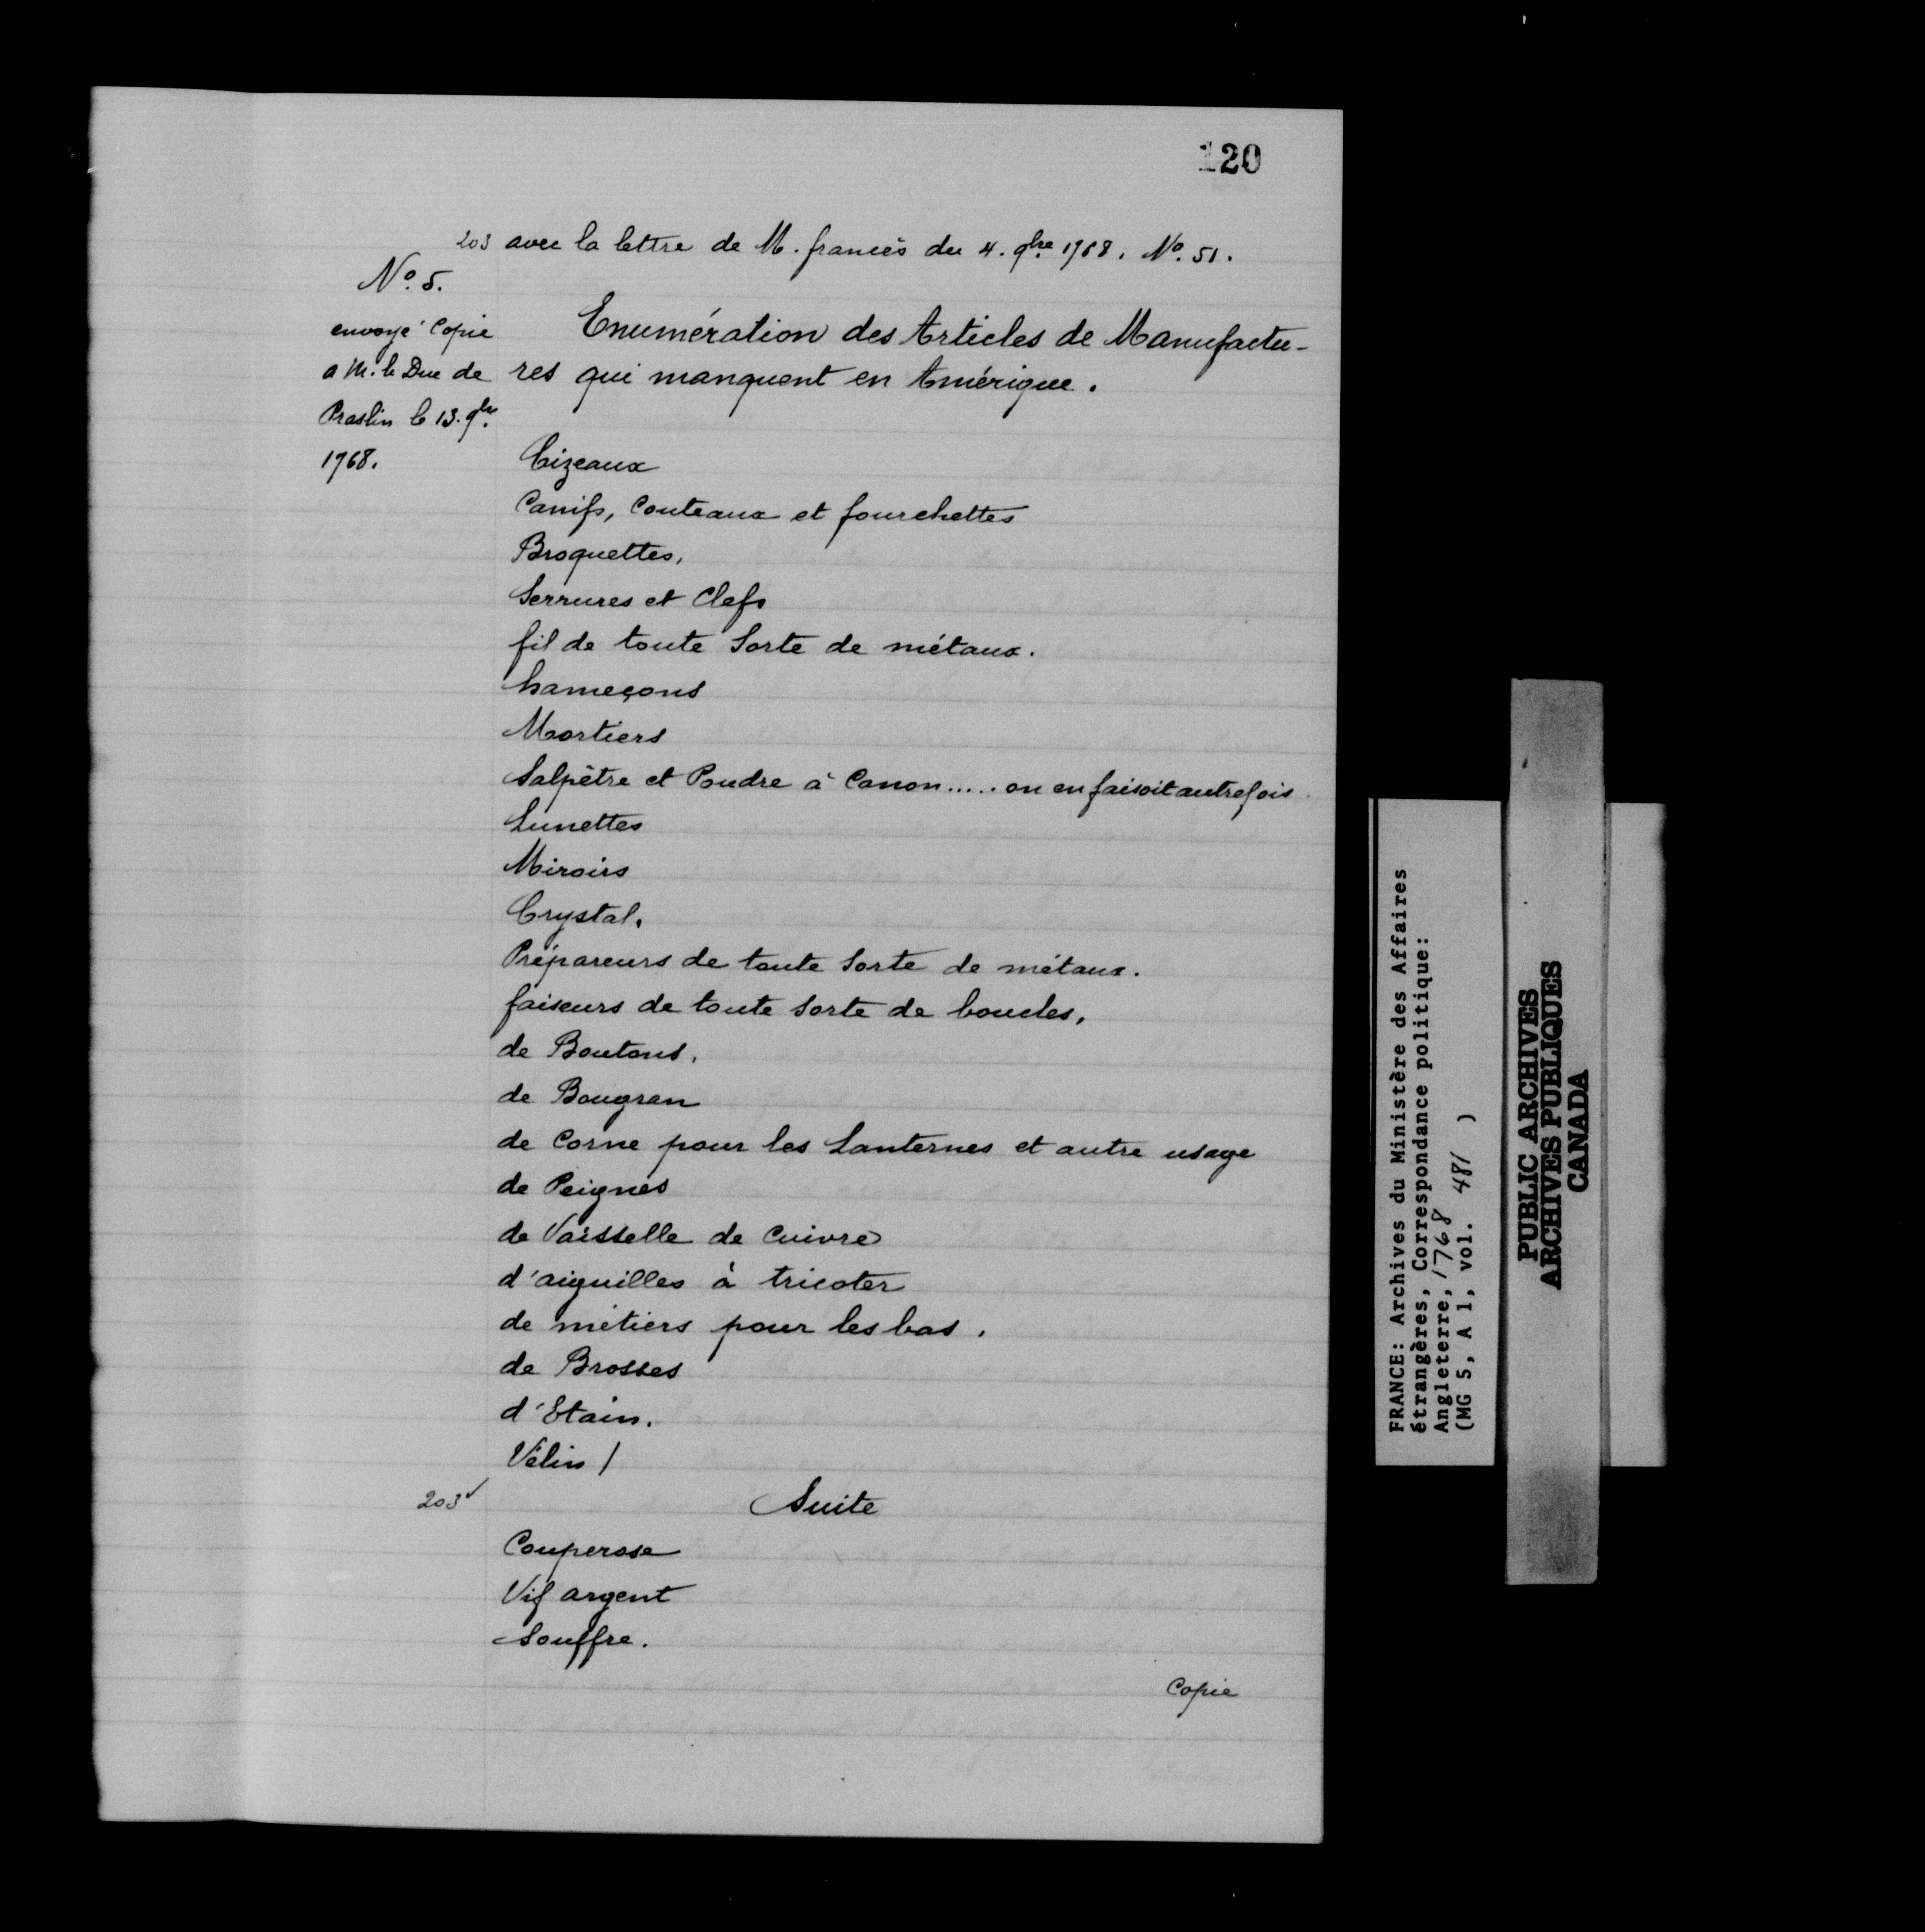 120
203 avec la lettre de M. francès du 4. 9bre 1768. No. 51.
No. 5.
envoyé Copie
a M. le Duc de
Praslin le 13. 9bre
1768.
Enumération des Articles de Manufactu-
res qui manquent en Amérique.
Cizeaux
Canifs, Couteaux et fourchettes
Broquettes,
Serrures et Clefs
fil de toute Sorte de métaux.
hameçons
Mortiers
Salpêtre et Poudre à Canon..... on en faisoit autrefois.
Lunettes
Miroirs
Crystal.
Prépareurs de toute Sorte de métaux.
faiseurs de toute sorte de boucles,
de Boutons,
de Bougran
de Corne pour les Lanternes et autre usage
de Peignes
de Vaisselle de Cuivre
d'aiguilles à tricoter
de métiers pour les bas,
de Brosses
d'Etain.
Vélin /
203v
Suite
Couperose
Vif argent
Souffre.
Copie
FRANCE: Archives du Ministère des Affaires
étrangères, Correspondance politique:
Angleterre, 1768
(MG 5, A 1, vol. 481 )
PUBLIC ARCHIVES
ARCHIVES PUBLIQUES
CANADA